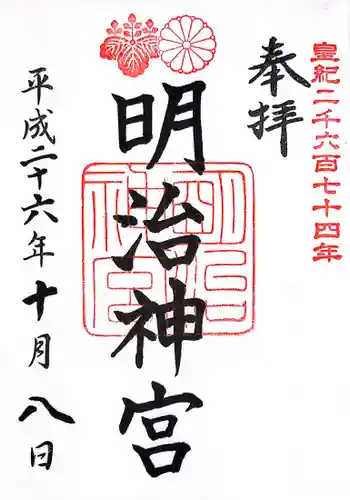 皇紀二千六百七十四年
奉拝
明治神宮
明治神宮
平成二十六年十月八日